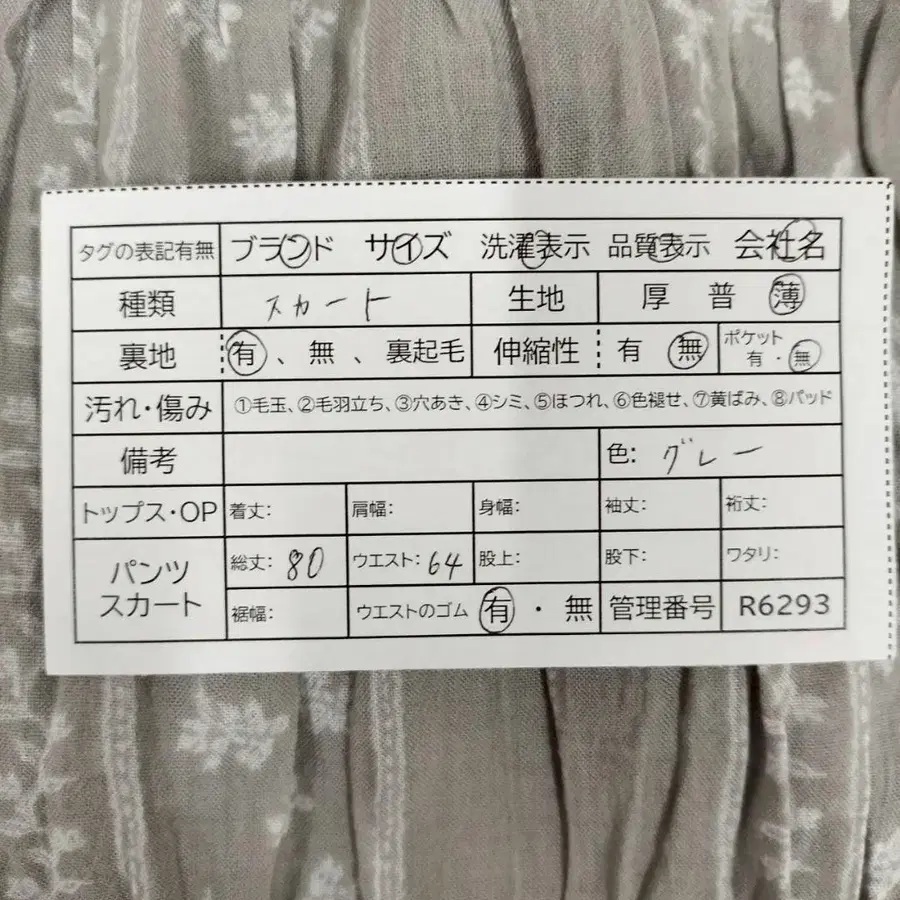 タグの表記有無 ブランド サイズ 洗濯表示 品質表示 会社名
種類 スカート 生地 厚 普 薄
裏地 有、無、裏起毛 伸縮性 有 無 ポケット 有・無
汚れ・傷み ①毛玉、②毛羽立ち、③穴あき、④シミ、⑤ほつれ、⑥色褪せ、⑦黄ばみ、⑧パッド
備考 色: グレー
トップス・OP 着丈: 肩幅: 身幅: 袖丈: 裄丈:
パンツ スカート 総丈: 80 ウエスト: 64 股上: 股下: ワタリ:
裾幅: ウエストのゴム 有・無 管理番号 R6293